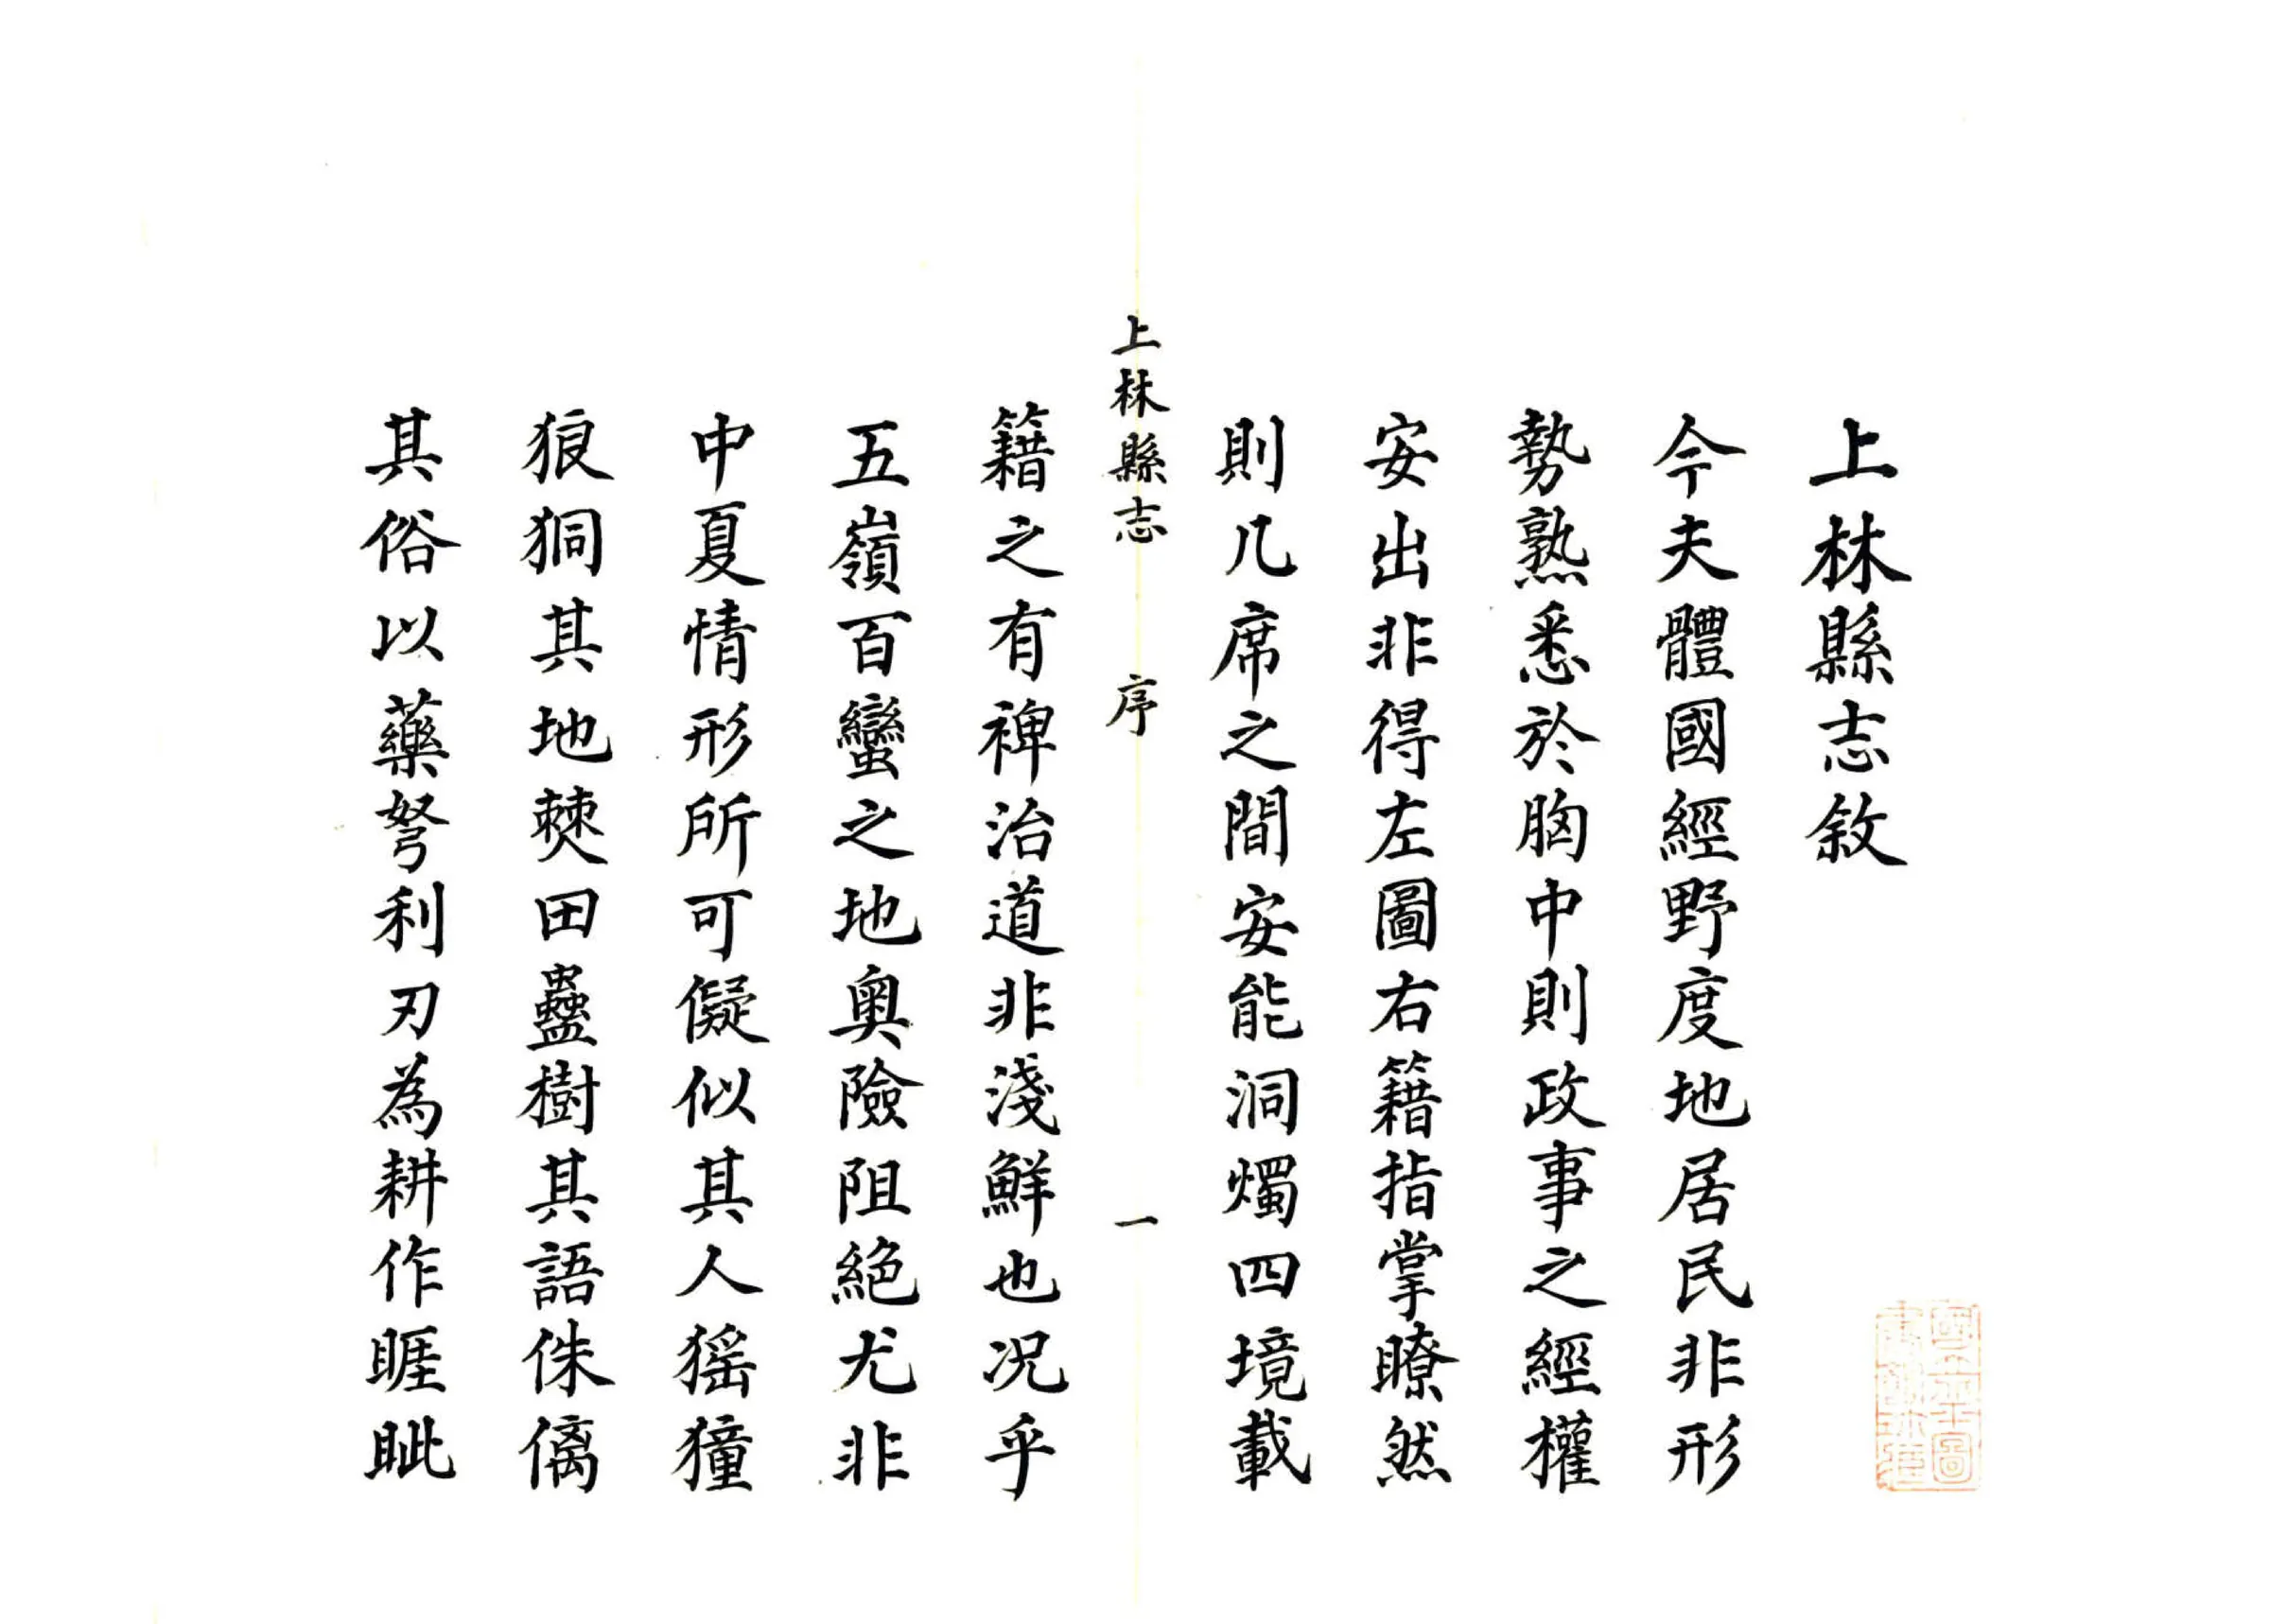 上林縣志敘
今夫體國經野度地居民非形
勢熟悉於胸中則政事之經權
安出非得左圖右籍指掌瞭然
則几席之間安能洞燭四境載
上林縣志 序 一
籍之有裨治道非淺鮮也况乎
五嶺百蠻之地奧險阻絕尤非
中夏情形所可儗似其人猺獞
狼狪其地僰田蠱樹其語侏㒧
其俗以藥弩利刃為耕作睚眦
國立北平圖
書館珍藏